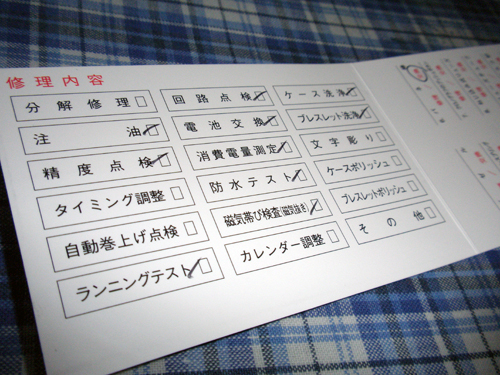 修理内容
分解修理
注油
精度点検
タイミング調整
自動巻上げ点検
ランニングテスト
回路点検
電池交換
消費電量測定
防水テスト
磁気帯び検査(磁気抜き)
カレンダー調整
ケース洗浄
ブレスレット洗浄
文字彫り
ケースポリッシュ
ブレスレットポリッシュ
その他